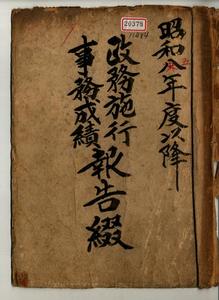 昭和八年度以降
政務施行
事務成績
報告綴
20378